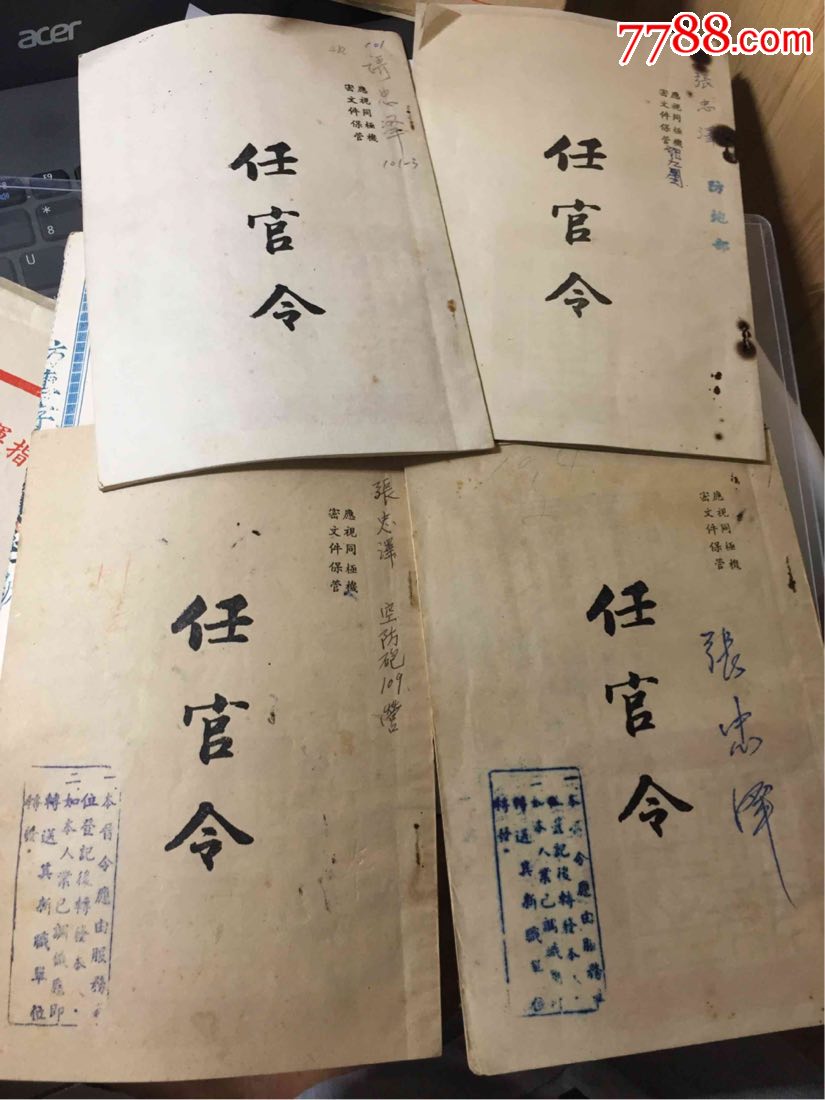 7788.com
acer
101
張忠澤
101-3
應視同極機
密文件保管
任官令
張忠澤
應視同極機
密文件保管
防砲部
任官令
張忠澤 空防砲109.營
應視同極機
密文件保管
任官令
一本晉令應由服務單
位登記後轉發本人
二如本人業已調職應即
轉送其新職單位
轉發。
應視同極機
密文件保管
任官令
張忠澤
一本晉令應由服務
位登記後轉發本
二如本人業已調職
轉送其新職單位
轉發。
指